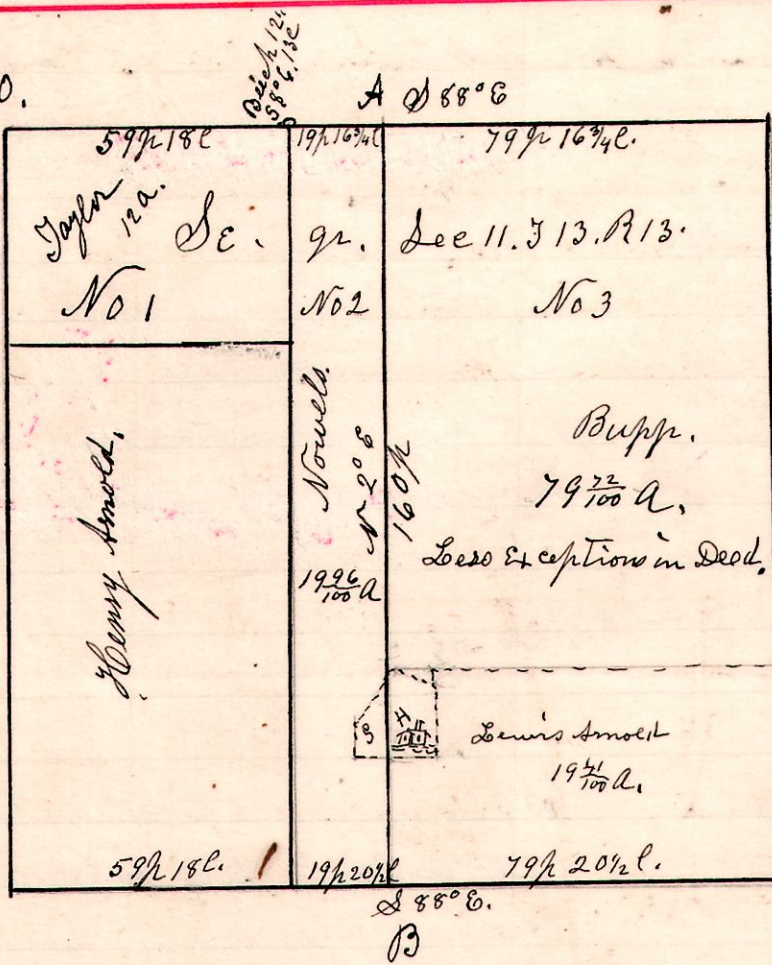 O.
Beech 12.
S 8° E. 13 l
A S 88° E
59 p 18 l
19 p 16 3/4 l
79 p 16 3/4 l.
Taylor
12 a.
Se. qr. Sec 11. T 13. R 13.
No 1
No 2
No 3
Henry Arnold.
Nowels.
N 2° E
160 p
19 96/100 A
Bupp.
79 72/100 A.
Less Exceptions in Deed.
S H
Lewis Arnold
19 41/100 A.
59 p 18 l.
19 p 20 1/2 l
79 p 20 1/2 l.
S 88° E.
B